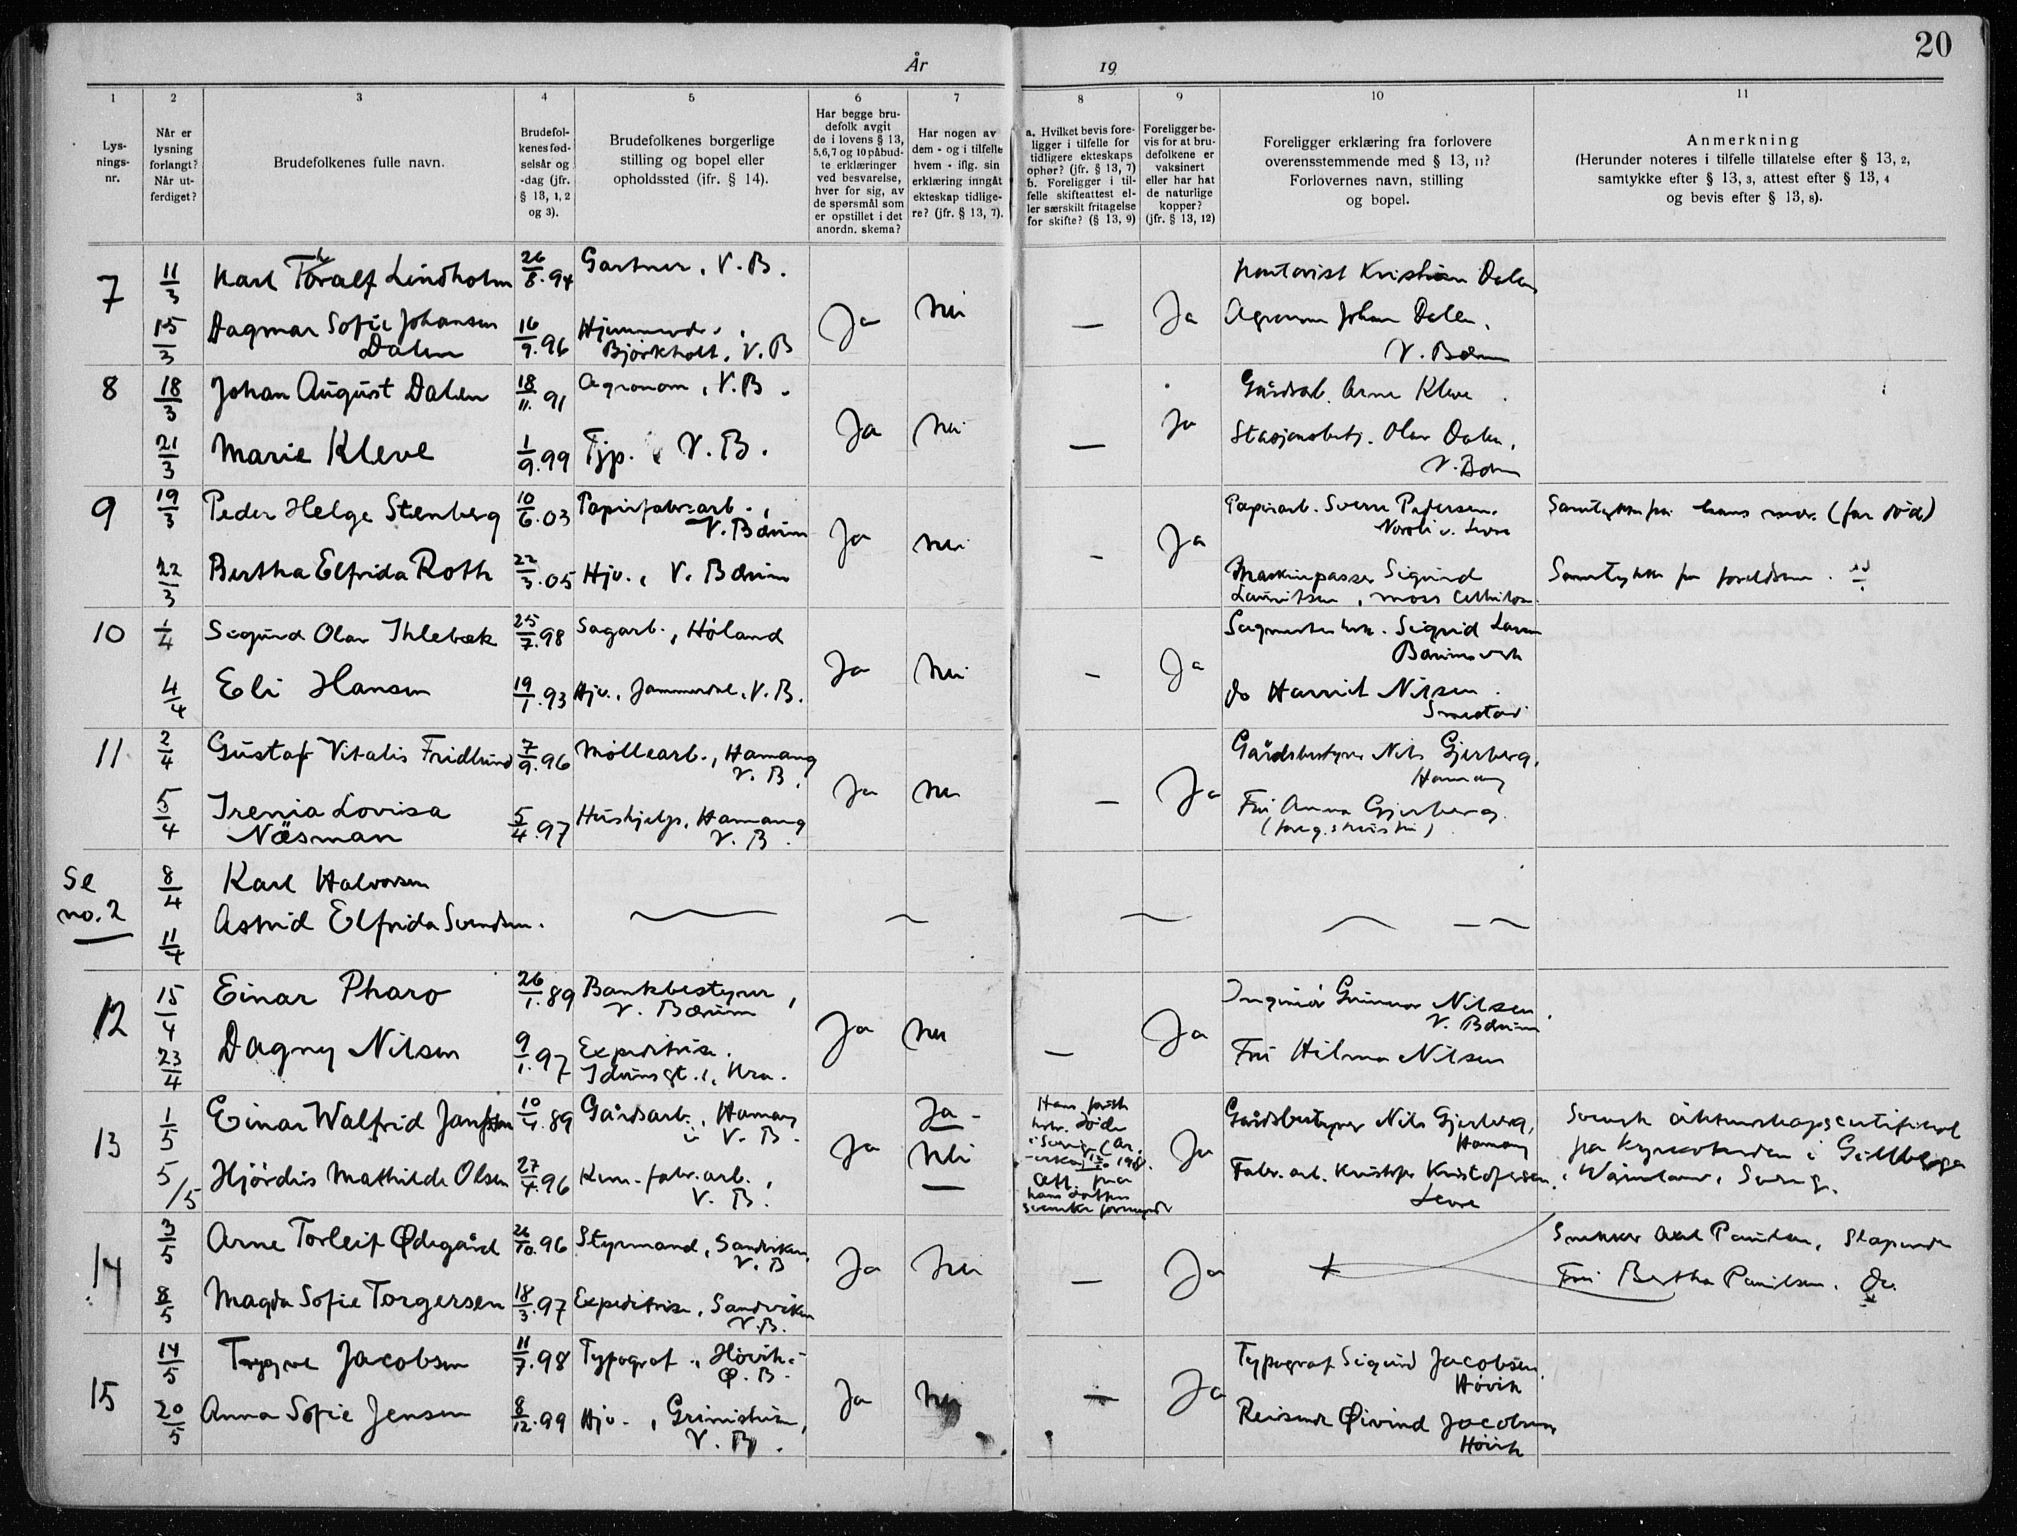 20
År 19
1 2 3 4 5 6 7 8 9 10 11
Lysnings-nr.
Når er lysning forlangt? Når utferdiget?
Brudefolkenes fulle navn.
Brudefolkenes fødselsår og -dag (jfr. § 13, 1, 2 og 3).
Brudefolkenes borgerlige stilling og bopel eller opholdssted (ifr. § 14).
Har begge brudefolk avgit de i lovens § 13, 5,6,7 og 10 påbudte erklæringer ved besvarelse, hver for sig, av de spørsmål som er opstillet i det anordn. skema?
Har nogen av dem - og i tilfelle hvem - iflg. sin erklæring inngåt ekteskap tidligere? (jfr. § 13, 7).
a. Hvilket bevis foreligger i tilfelle for tidligere ekteskaps ophør? (jfr. § 13, 7) b. Foreligger i tilfelle skifteattest eller særskilt fritagelse for skifte? (§ 13, 9)
Foreligger bevis for at brudefolkene er vaksinert eller har hat de naturlige kopper? (jfr. § 13, 12)
Foreligger erklæring fra forlovere overensstemmende med § 13, 11? Forlovernes navn, stilling og bopel.
Anmerkning (Herunder noteres i tilfelle tillatelse efter § 13, 2, samtykke efter § 13, 3, attest efter § 13, 4 og bevis efter § 13, 8).
7 11/3 Karl Thoralf Lindholm 26/8.94 Gartner, V.B. Kontorist Kristian Dalen
15/3 Dagmar Sofie Johansen 16/9.96 Ja nei — Ja Agronom Johan Dalen,
Dalen Bjørkholt, V.B V. Bærum
8 18/3 Johan August Dalen 18/11.91 Agronom, V.B. Gårdsarb. Arne Kleve
21/3 Marie Kleve 1/9.99 Typ. V.B. Ja Nei — Ja Stasjonsbetj. Olav Dalen,
V. Bærum
9 19/3 Peder Helge Stenberg 10/6.03 Papirfabr.arb., Papirarb. Sverre Pedersen, Samtykke fra hans mor (far død)
V. Bærum
22/3 Bertha Elfrida Roth 22/3.05 Hjv., V. Bærum Ja nei - Ja Maskinpasser Sigurd Samtykke fra foreldrene.
Lauritsen
10 1/4 Sigurd Olav Ihlebæk 25/7.98 Sagarb., Høland Sigrid Larsen
Bærumsverk
4/4 Eli Hansen 19/1.93 Hjv., Jammerdal, V.B. Ja Nei - Ja do Harriet Nilsen
Smestad
11 2/4 Gustaf Vitalis Fridlund 7/9.96 Møllearb., Hamang Gårdsbestyrer Nils Gjerberg,
V.B. Hamang
5/4 Irenia Lovisa 5/4.97 Hushjelp, Hamang Ja nei — Ja Fru Anna Gjerberg
Näsman V.B.
Se no. 2 8/4 Karl Halvorsen
11/4 Astrid Elfrida Svendsen.
12 15/4 Einar Pharo 26/1.89 Bankbestyrer, Ingeniør Gunnar Nilsen,
V. Bærum V. Bærum
23/4 Dagny Nilsen 9/1.97 Expeditrise. Ja nei — Ja Fru Hilma Nilsen
Kra.
13 1/5 Einar Walfrid Jansson 10/4.89 Gårdsarb., Hamang Ja - Hans forr. Gårdsbestyrer Nils Gjerberg, Svensk äktenskapscertifikat
V.B. Hamang fra Kyrkoherden i Gillberga
5/5 Hjördis Mathilde Olsen 27/4.96 Kem. fabr.arb., Ja nei Att. fra hans datters svenske formynder Ja Fabr.arb. Kristoffersen i Värmland, Sverig.
V.B.
14 3/5 Arne Torleif Ødegård 26/10.96 Styrmand, Sandviken Snekker Axel Paulsen, Slependen
V.B
8/5 Magda Sofie Torgersen 18/3.97 Expeditrise, Sandviken Ja Nei — Ja + Fru Bertha Paulsen. do.
V.B.
15 14/5 Trygve Jacobsen 11/7.98 Typograf, Høvik Typograf Sigurd Jacobsen
Ø.B. Høvik
20/5 Anna Sofie Jensen 8/12.99 Hjv., V.B. Ja Nei — Ja Reisende Øivind Jacobsen
Høvik